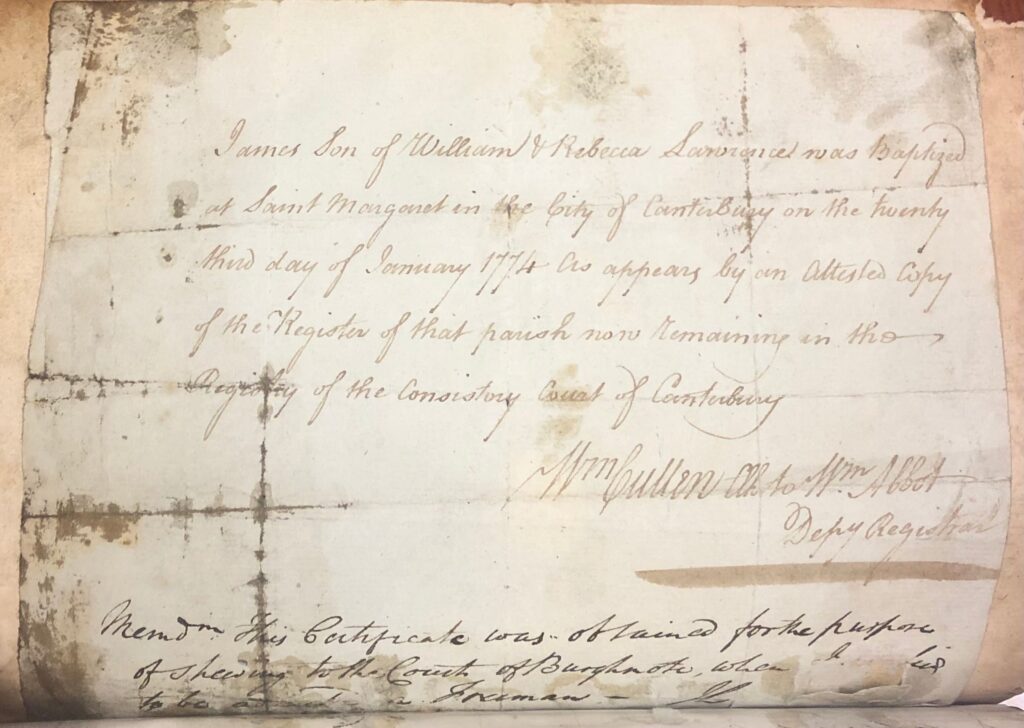 James Son of William & Rebecca Lawrence was Baptized
at Saint Margaret in the City of Canterbury on the twenty
third day of January 1774 As appears by an Attested Copy
of the Register of that parish now remaining in the
Registry of the Consistory Court of Canterbury
Wm Cullen Clk to Wm Abbot
Depy Registrar
Memdm This Certificate was obtained for the purpose
of shewing to the Court of Burghmote, when I
to be a Freeman